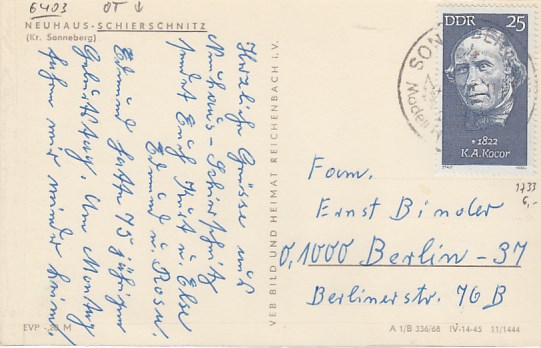 6403 OT ↓
NEUHAUS-SCHIERSCHNITZ
(Kr. Sonneberg)
Herzliche Grüsse aus
Neuhaus-Schierschnitz
sendet Euch Kurt u. Else
Edmund u. Rosa.
Edmund hatte 75 jährigen
Geburtstag. Am Montag
fahren wir wieder heim.
EVP -,20 M
VEB BILD UND HEIMAT REICHENBACH I. V.
DDR 25
• 1822
K.A.Kocor
SON
Modell
1733
6,-
Fam.
Ernst Binder
0,1000 Berlin-37
Berlinerstr. 76 B
A 1/B 336/68 IV-14-45 11/1444